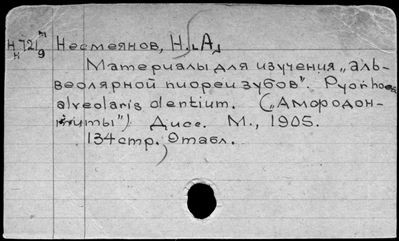 Несмеянов, Н. А.
Материалы для изучения „аль-
веолярной пиореи зубов". Pyorrhoea
alveolaris dentium. („Амфодон-
титы") Дисс. М., 1905.
134 стр., 9 табл.